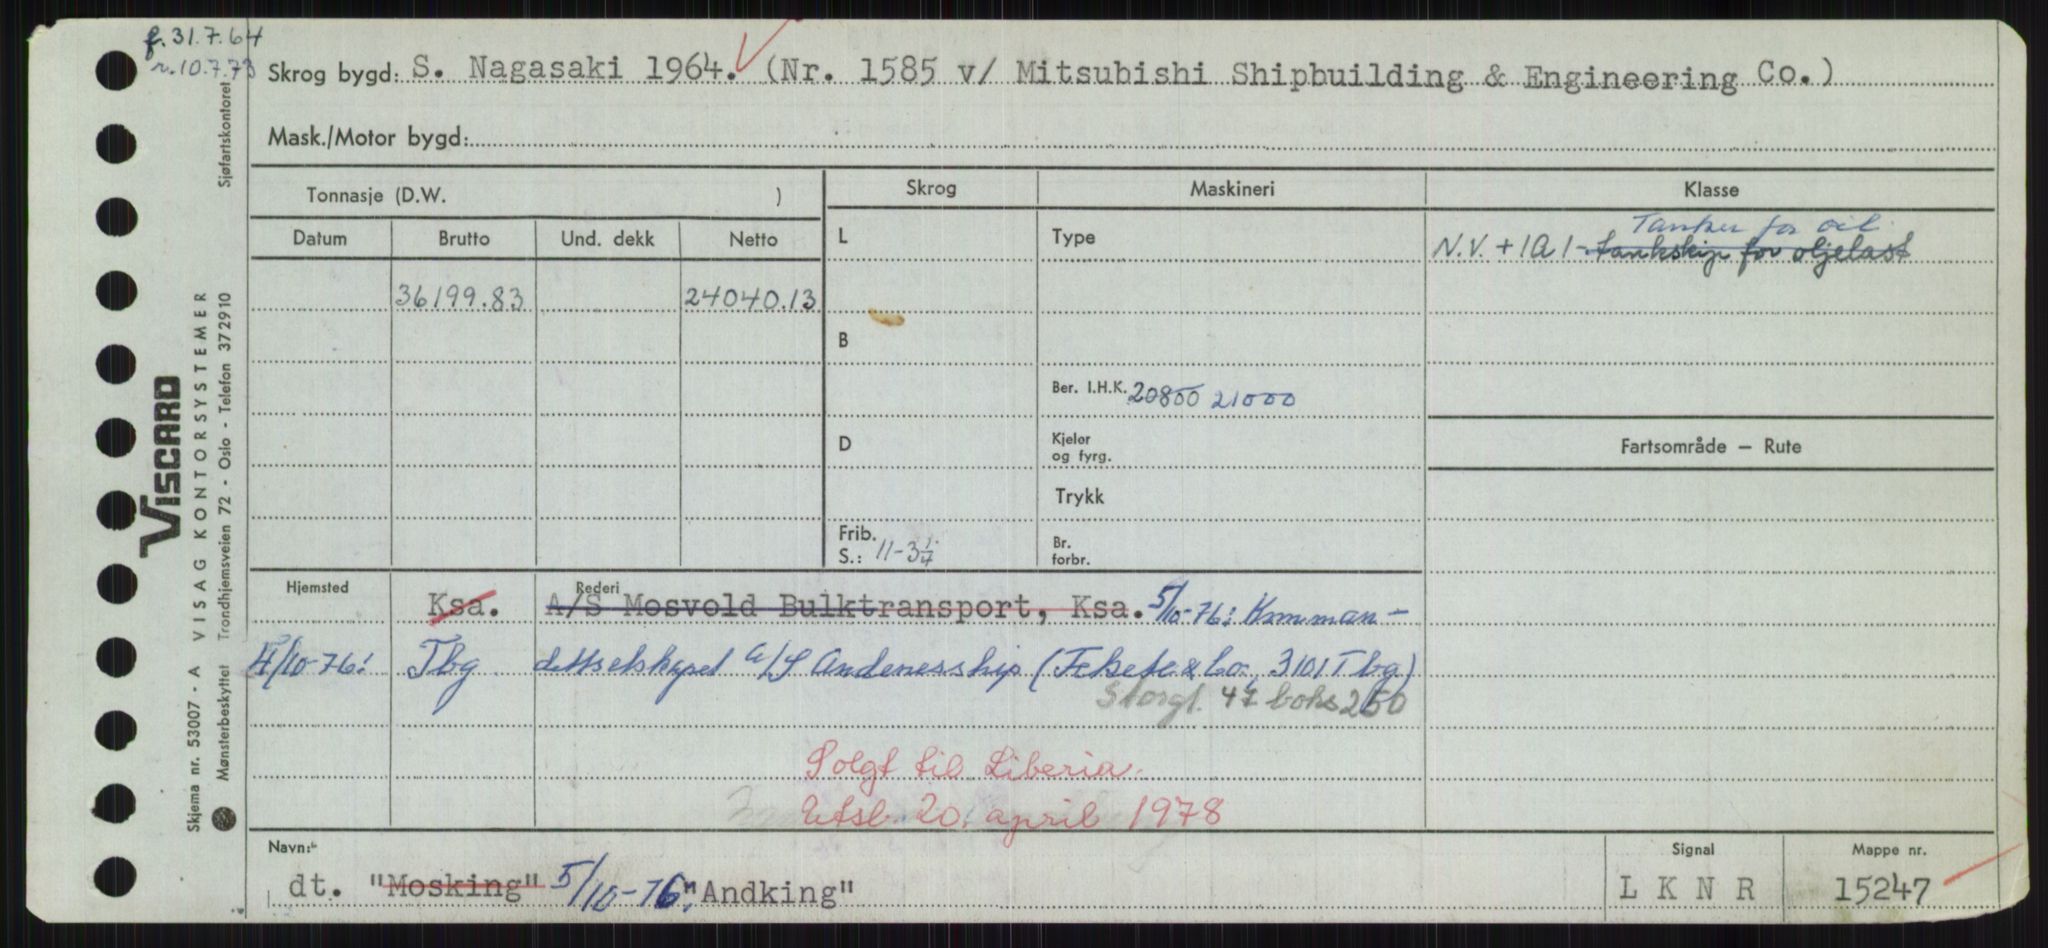 f. 31.7.64
r. 10.7.73
Skrog bygd: S. Nagasaki 1964. (Nr. 1585 v/ Mitsubishi Shipbuilding & Engineering Co.)
Mask./Motor bygd:
Tonnasje (D.W. )
Skrog
Maskineri
Klasse
Datum
Brutto
Und. dekk
Netto
L
Type
Tanker for oil
N.V. + 1A1 - tankskip for oljelast
36199.83
24040.13
B
Ber. I.H.K. 20800 21000
D
Kjeler
og fyrg.
Fartsområde — Rute
Trykk
Frib.
S.: 11-3¼
Br.
forbr.
Hjemsted
Rederi
Ksa.
A/S Mosvold Bulktransport, Ksa. 5/10-76: Komman-
5/10-76: Tbg
dittselskapet A/S Andenesship (Fekete & Co., 3101 Tbg)
Storgt. 47 boks 250
Solgt til Liberia.
Utsl. 20. april 1978
Navn:
dt. "Mosking" 5/10-76: "Andking"
Signal
L K N R
Mappe nr.
15247
Sjøfartskontoret
VISCARD
Skjema nr. 53007 - A VISAG KONTORSYSTEMER
Mønsterbeskyttet Trondhjemsveien 72 - Oslo - Telefon 372910